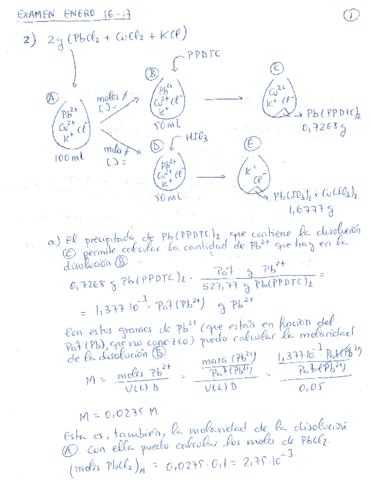 EXAMEN ENERO 16-17
1
2) 2g (PbCl2 + CuCl2 + KCl)
PPDTC
A
B
C
Pb2+
Cu2+
K+ Cl-
100 mL
moles ≠
[ ] =
Pb2+
Cu2+
K+ Cl-
50 mL
Cu2+
K+ Cl-
Pb(PPDTC)2
0,7268 g
HIO3
moles ≠
[ ] =
D
E
Pb2+
Cu2+
K+ Cl-
50 mL
K+ Cl-
Pb(IO3)2 + Cu(IO3)2
1,6777 g
a) El precipitado de Pb(PPDTC)2 que contiene la disolución
C permite calcular la cantidad de Pb2+ que hay en la
disolución B
0,7268 g Pb(PPDTC)2 · Pat g Pb2+ / 527,77 g Pb(PPDTC)2 =
= 1,377·10-3 · Pat(Pb2+) g Pb2+
Con estos gramos de Pb2+ (que están en función del
Pat(Pb), que no conozco) puedo calcular la molaridad
de la disolución B
M = moles Pb2+ / V(L) D = masa (Pb2+) / Pat(Pb2+) / V(L) D = 1,377·10-3 · Pat(Pb2+) / Pat(Pb2+) / 0,05
M = 0,0275 M
Esta es, también, la molaridad de la disolución
A. Con ella puedo calcular los moles de PbCl2.
(moles PbCl2)A = 0,0275 · 0,1 = 2,75·10-3